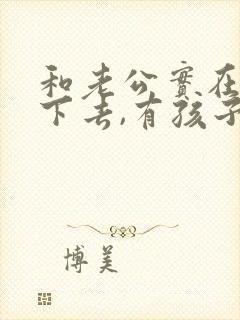 和老公實在
下去,有孩子
博美